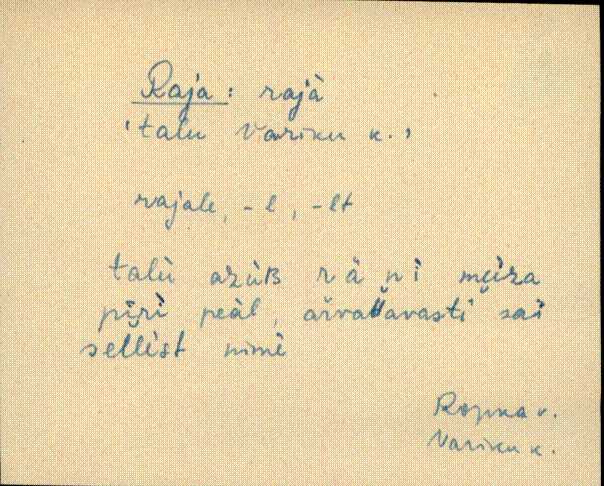 Raja : rajà
'talu Variku k.'
rajale, -l, -lt
talù azùʙ rä ni mȩìza
pīrì peàl, arvattavasti saì
sellìst nimè
Ropka v.
Variku k.